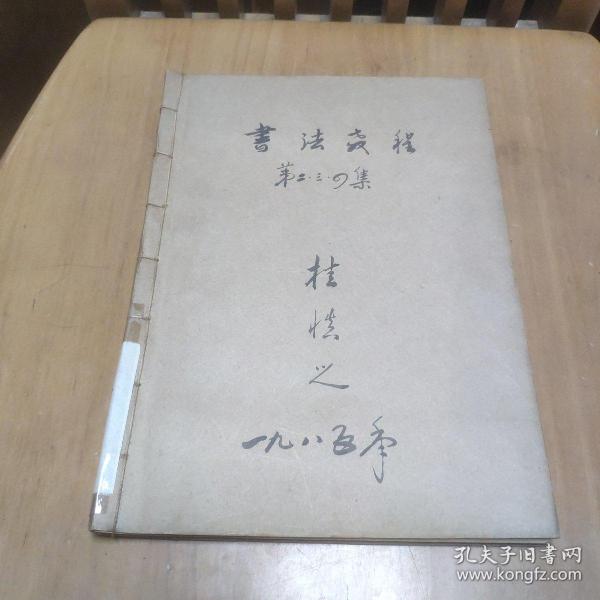 書法教程
第二·三·四集
桂慎之
一九八五年
孔夫子旧书网
www.kongfz.com